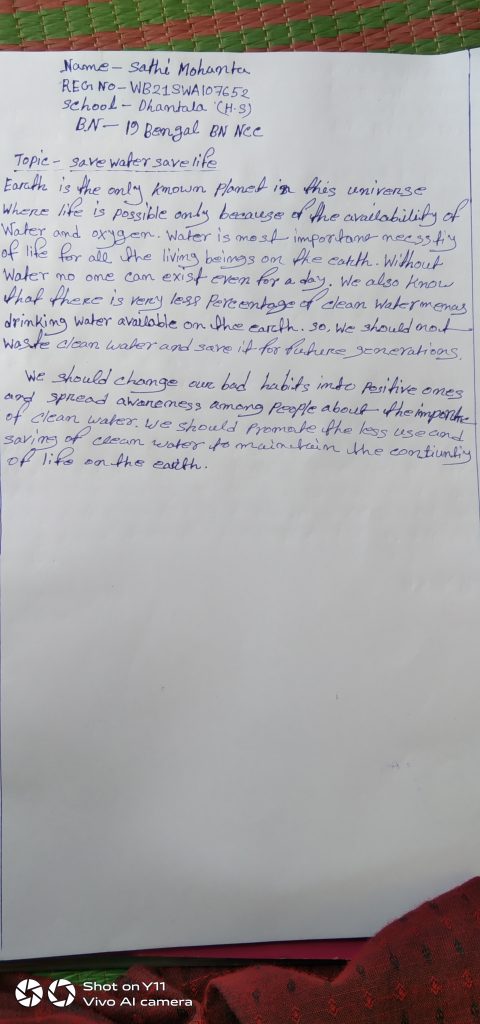 Name - Sathi Mohanta
REG NO - WB21SWA107652
School - Dhantala (H.S)
B.N - 19 Bengal BN NCC
Topic - save water save life
Earth is the only known Planet in this universe
Where life is possible only because of the availability of
Water and oxygen. Water is most important necesstiy
of life for all the living beings on the earth. Without
Water no one can exist even for a day. We also know
that there is very less Percentage of clean Water menas
drinking water available on the earth. so, we should not
waste clean water and save it for future generations.
We should change our bad habits into Positive ones
and spread awareness among People about the importe
of clean water. We should Promate the less use and
saving of clean water to maintain the contiuntiy
of life on the earth.
Shot on Y11
Vivo AI camera